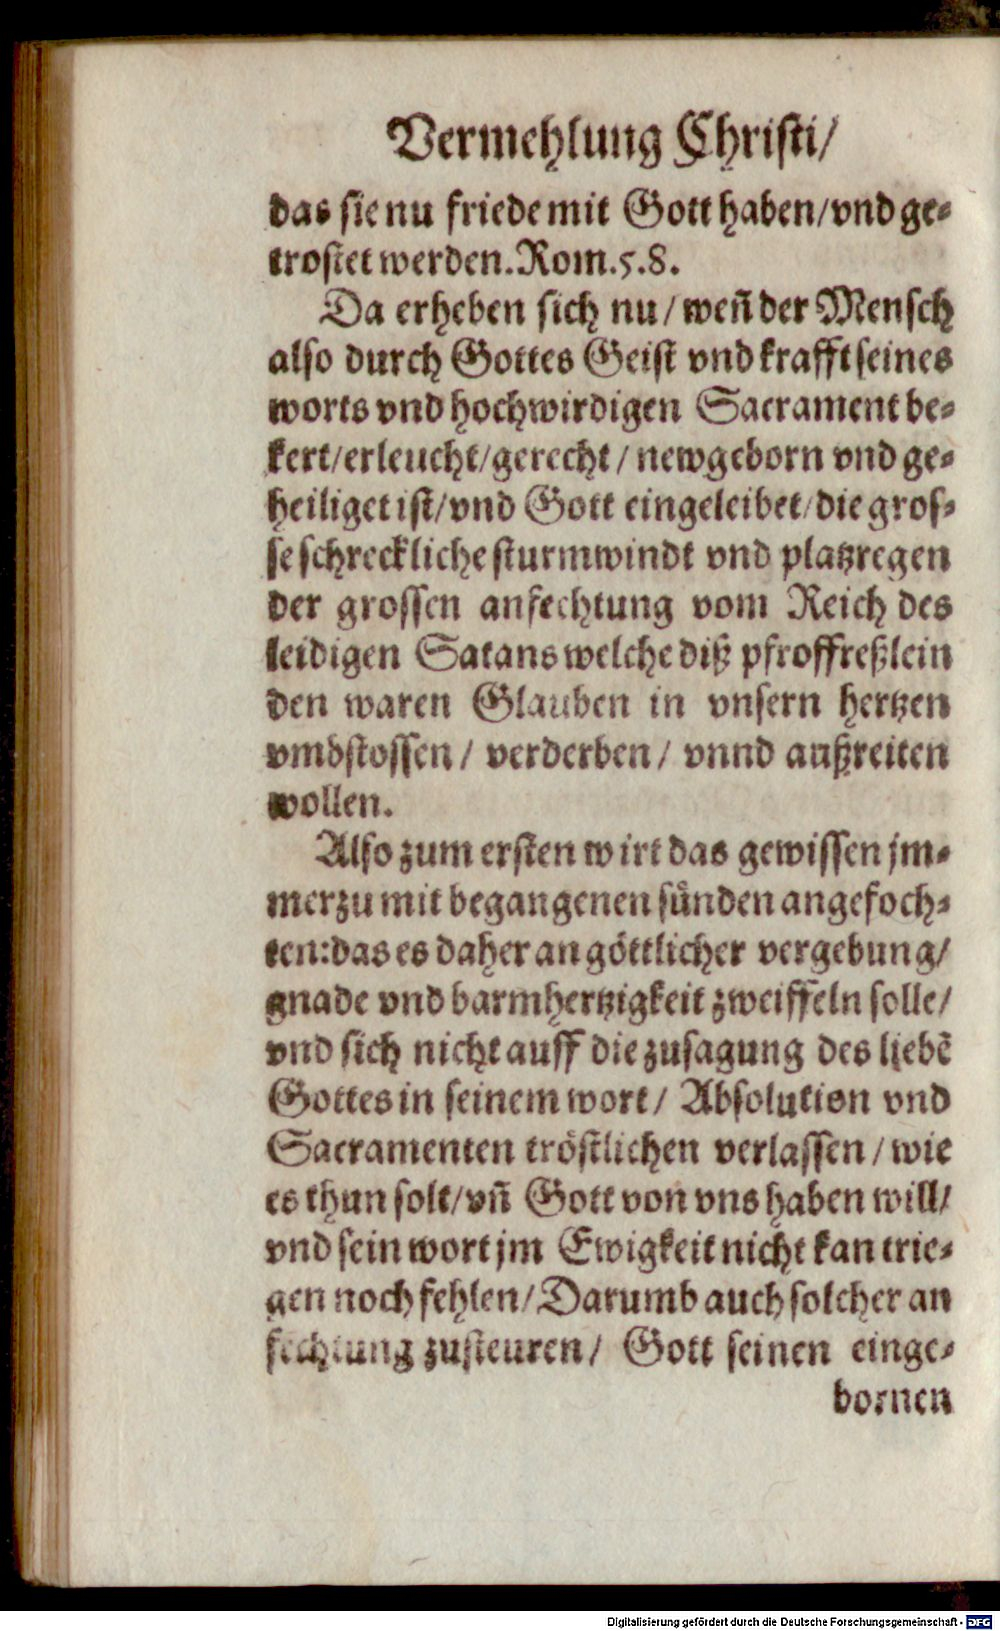 Vermehlung Christi/
das sie nu friede mit Gott haben/vnd ge-
trostet werden. Rom.5.8.
Da erheben sich nu/ weñ der Mensch
also durch Gottes Geist vnd krafft seines
worts vnd hochwirdigen Sacrament be-
kert/erleucht/gerecht/ newgeborn vnd ge-
heiliget ist/vnd Gott eingeleibet/die gros-
se schreckliche sturmwindt vnd platzregen
der grossen anfechtung vom Reich des
leidigen Satans welche diß pfroffreßlein
den waren Glauben in vnsern hertzen
vmbstossen/ verderben/ vnnd außreiten
wollen.
Also zum ersten wirt das gewissen jm-
merzu mit begangenen sünden angefoch-
ten: das es daher an göttlicher vergebung/
gnade vnd barmhertzigkeit zweiffeln solle/
vnd sich nicht auff die zusagung des liebẽ
Gottes in seinem wort/ Absolution vnd
Sacramenten tröstlichen verlassen/ wie
es thun solt/vñ Gott von vns haben will/
vnd sein wort jm Ewigkeit nicht kan trie-
gen noch fehlen/ Darumb auch solcher an
fechtung zusteuren/ Gott seinen einge-
bornen
Digitalisierung gefördert durch die Deutsche Forschungsgemeinschaft - DFG